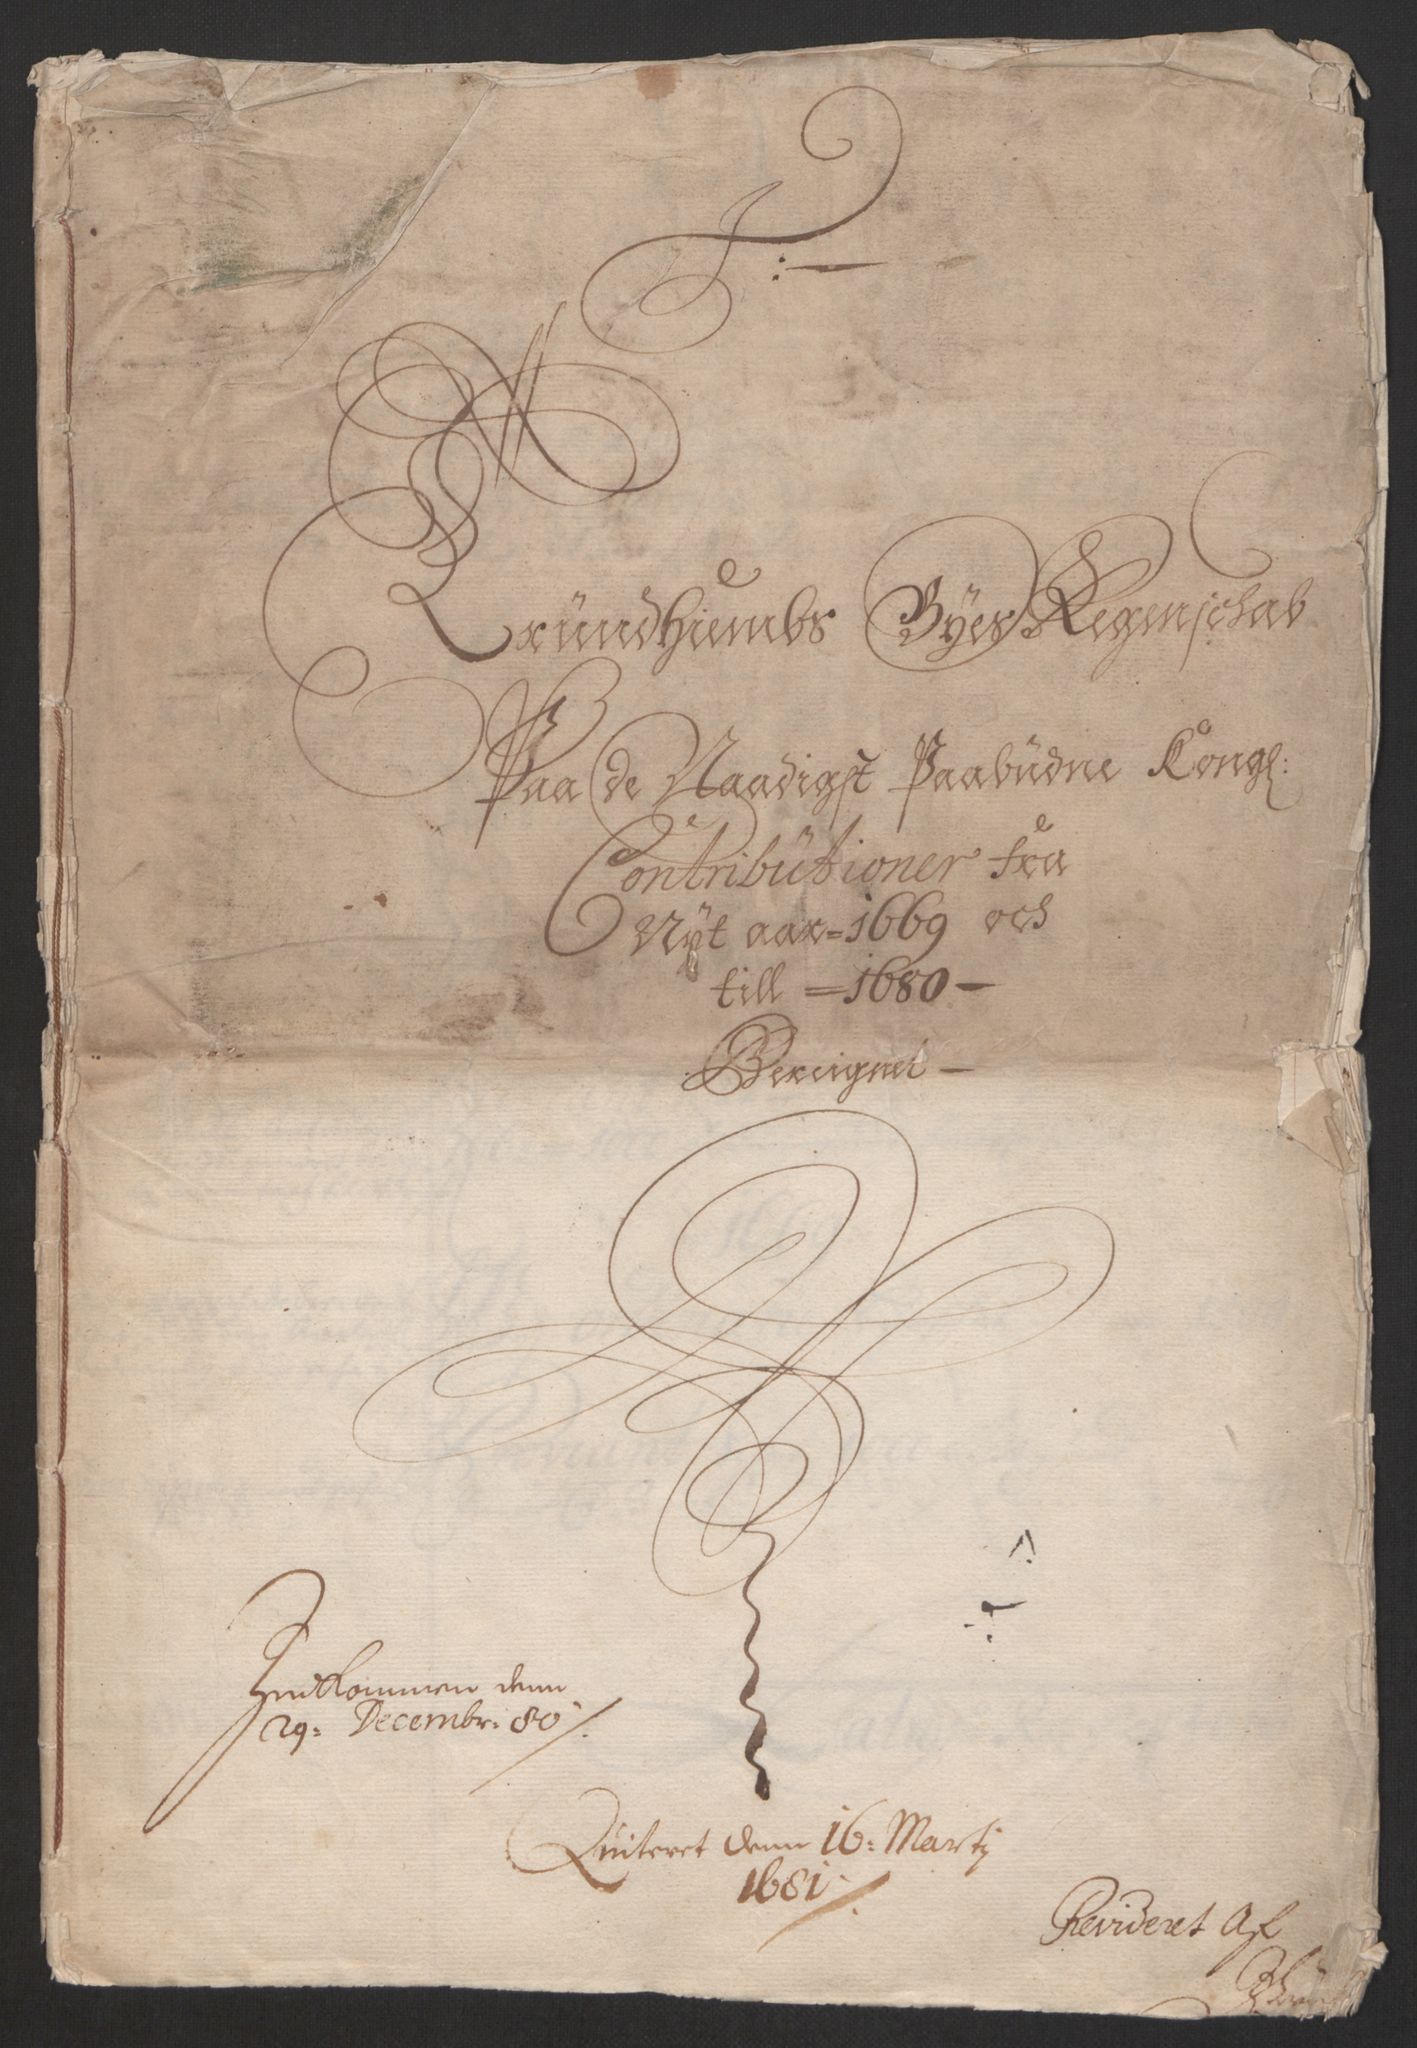 Tründhiembs Byes Regenschab
Paa de Naadigst Paabüdne Kongl:
Contribütioner fra
Nyt aar=1669 och
till =1680-
Bereignet -
Indkommen denn
29: Decembr: 80
Quiteret denn 16: Martij
1681
Revideret Af